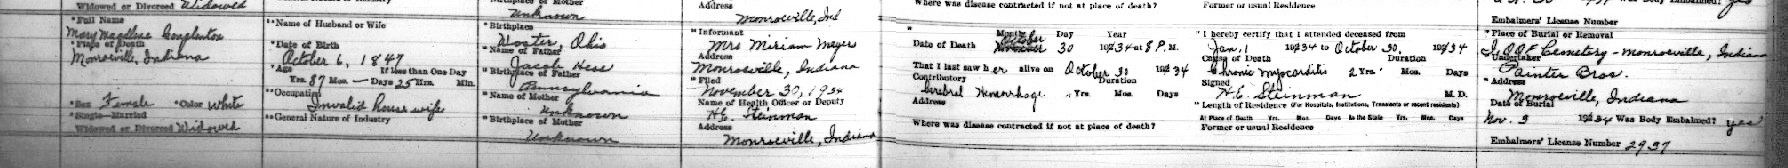 Widowed or Divorced Widowed
Unknown
Address
Monroeville, Ind
Where was disease contracted if not at place of death?
Former or usual Residence
Was Body Embalmed? yes
Embalmers' License Number
Full Name
Mary Magdlene Conglenton
Place of Death
Monroeville, Indiana
Sex Female Color White
Single—Married
Widowed or Divorced Widowed
Name of Husband or Wife
Date of Birth
October 6, 1847
Age If less than One Day
Yrs. 87 Mos. — Days 25 Hrs. Min.
Occupation
Invalid house wife
General Nature of Industry
Birthplace
Woster, Ohio
Name of Father
Jacob Hese
Birthplace of Father
Pennsylvania
Name of Mother
Unknown
Birthplace of Mother
Unknown
Informant
Mrs Miriam Meyer
Monroeville, Indiana
Filed
November 30, 1934
Name of Health Officer or Deputy
H.E. Steinman
Address
Monroeville, Indiana
Month Day Year
October
Date of Death November 30 1934 at 8 P.M.
That I last saw her alive on October 30 1934
Contributory Duration
Cerebrel Hemorrhage Yrs. Mos. Days
Address
Where was disease contracted if not at place of death?
I hereby certify that I attended deceased from
Jan. 1 1934 to October 30, 1934
Cause of Death Duration
Chronic Myocarditis 2 Yrs. Mos. Days
Signed
H.E. Steinman M.D.
Length of Residence (For Hospitals, Institutions, Transients or recent residents)
At Place of Death Yrs. Mos. Days In the State Yrs. Mos. Days
Former or usual Residence
Place of Burial or Removal
IOOF Cemetery - Monroeville, Indiana
Undertaker
Painter Bros.
Address
Monroeville, Indiana
Date of Burial
Nov. 3 1934 Was Body Embalmed? yes
Embalmers' License Number 2937